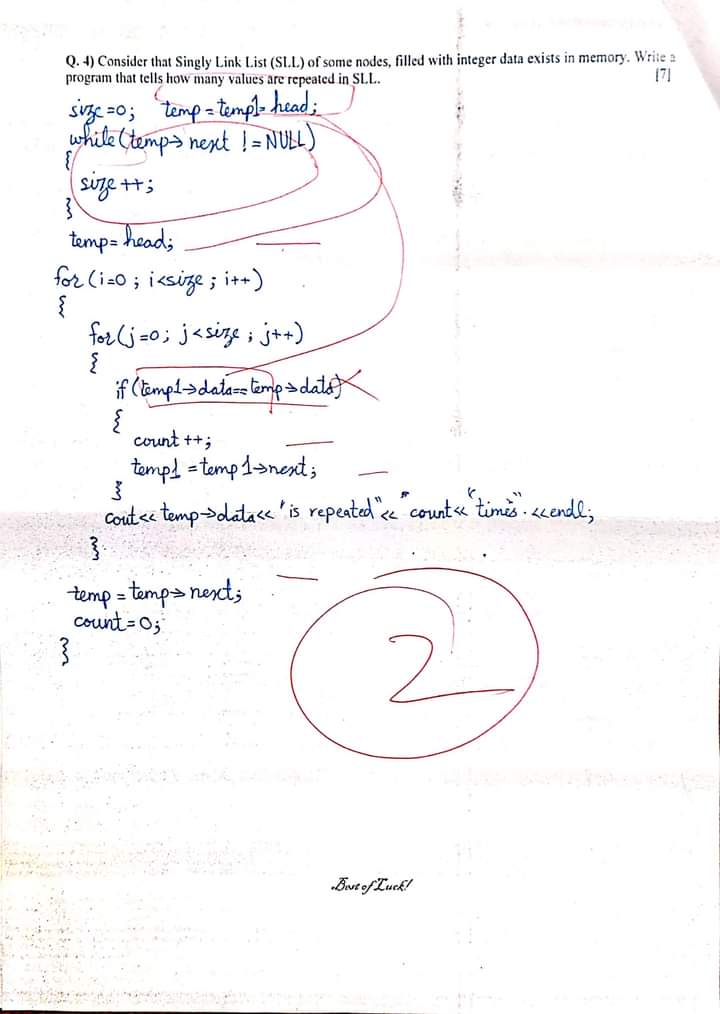 Q. 4) Consider that Singly Link List (SLL) of some nodes, filled with integer data exists in memory. Write a
program that tells how many values are repeated in SLL. [7]
size=0; temp=temp1=head;
while(temp→next !=NULL)
{
size++;
}
temp=head;
for(i=0; i<size; i++)
{
for(j=0; j<size; j++)
{
if(temp1→data==temp→data)
{
count++;
temp1=temp1→next;
}
cout<<temp→data<<'is repeated"<<"count<<"times".<<endl;
}
temp=temp→next;
count=0;
}
2
Best of Luck!